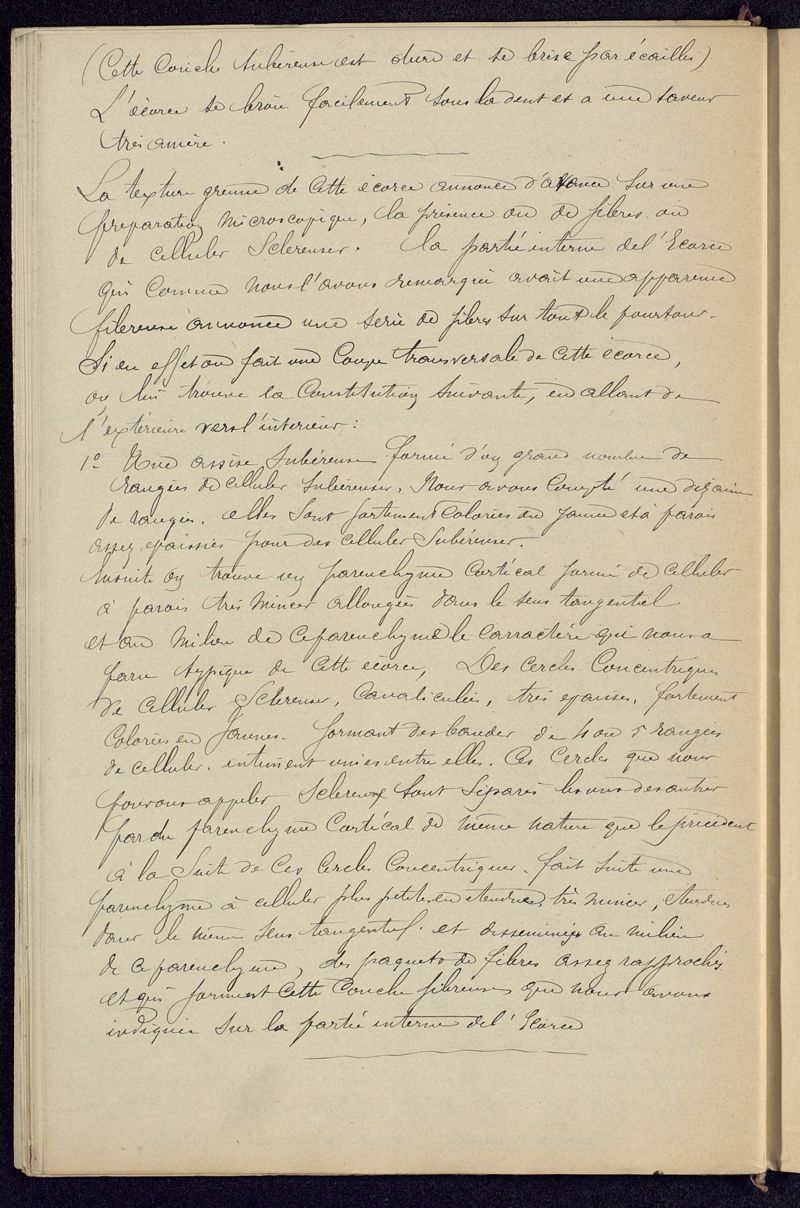 (Cette Couche Subéreuse est dure et se brise par écailles)
L'écorce se broie facilement sous la dent et a une saveur
très amère.
La texture grenue de Cette écorce annonce d'avance sur une
préparation Microscopique, la présence ou de fibres ou
de cellules Scléreuses. la partie interne de l'Ecorce
qui Comme nous l'avons remarqué avait une apparence
fibreuse annonce une série de fibres sur tout le pourtour.
Si en effet on fait une Coupe transversale de Cette écorce,
on lui trouve la Constitution suivante, en allant de
l'extérieure vers l'intérieur :
1º Une assise Subéreuse formée d'un grand nombre de
rangées de cellules subéreuses. Nous avons Compté une dizaine
de rangées. elles sont fortement Colorées en jaune et à parois
assez épaissies pour des cellules Subéreuses.
Ensuite on trouve un parenchyme Cortical formé de cellules
à parois très minces allongées dans le sens tangentiel
et au milieu de ce parenchyme le carractère qui nous a
paru typique de Cette écorce, Des Cercles Concentriques
de cellules Scléreuses, Canaliculées, très épaisses, fortement
Colorées en Jaunes. formant des bandes de 4 ou 5 rangées
de cellules. intiment unies entre elles. Ces Cercles que nous
pouvons appeler Scléreux sont séparés les uns des autres
par du parenchyme Cortical de même nature que le précédent
à la Suite de Ces Cercles Concentriques. fait suite une
parenchyme à cellules plus petites en étendues, très minces, étendues
dans le même sens tangentiel. et desseminés au milieu
de ce parenchyme, des paquets de fibres assez rapprochés
et qui forment Cette Couche fibreuse que nous avons
indiquée sur la partie interne de l'Ecorce